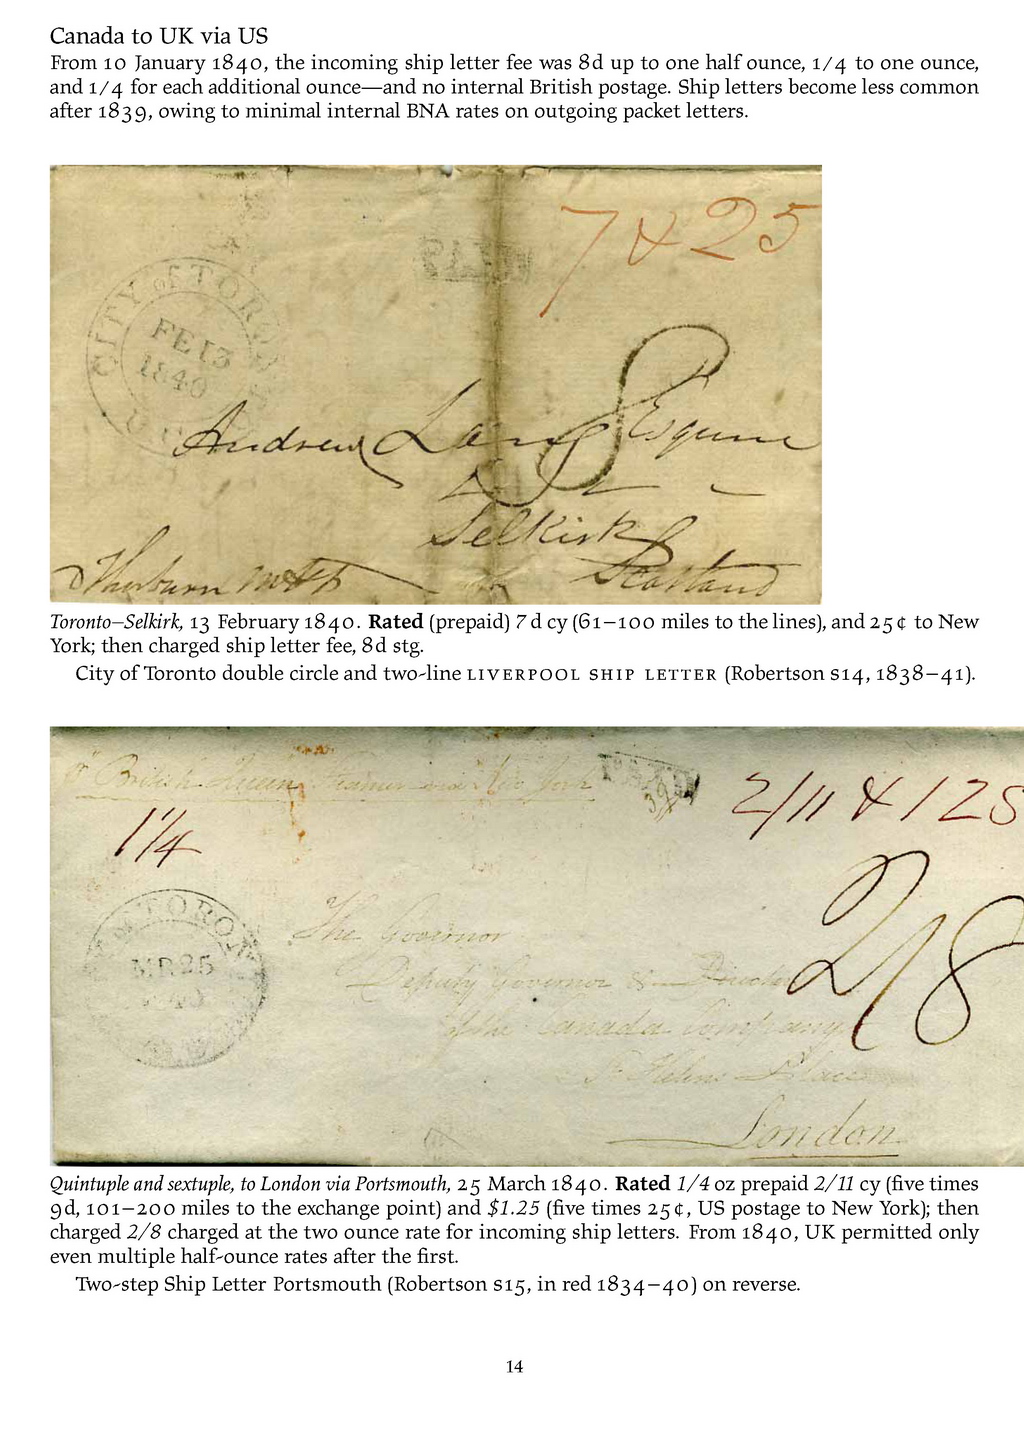 Canada to UK via US
From 10 January 1840, the incoming ship letter fee was 8d up to one half ounce, 1/4 to one ounce,
and 1/4 for each additional ounce—and no internal British postage. Ship letters become less common
after 1839, owing to minimal internal BNA rates on outgoing packet letters.
7 & 25
PAID
CITY OF TORONTO
FE 13
1840
U.C.
8
Andrew Lang Esquire
Selkirk
Scotland
Toronto–Selkirk, 13 February 1840. Rated (prepaid) 7d cy (61–100 miles to the lines), and 25¢ to New
York; then charged ship letter fee, 8d stg.
City of Toronto double circle and two-line LIVERPOOL SHIP LETTER (Robertson S14, 1838–41).
British Queen Steamer via New York
PAID
2/11 & 125
1 1/4
OF TORON
MR 25
2/8
The Governor
Deputy Governor &
of the Canada Company
St Helens Place
London
Quintuple and sextuple, to London via Portsmouth, 25 March 1840. Rated 1/4 oz prepaid 2/11 cy (five times
9d, 101–200 miles to the exchange point) and $1.25 (five times 25¢, US postage to New York); then
charged 2/8 charged at the two ounce rate for incoming ship letters. From 1840, UK permitted only
even multiple half-ounce rates after the first.
Two-step Ship Letter Portsmouth (Robertson S15, in red 1834–40) on reverse.
14